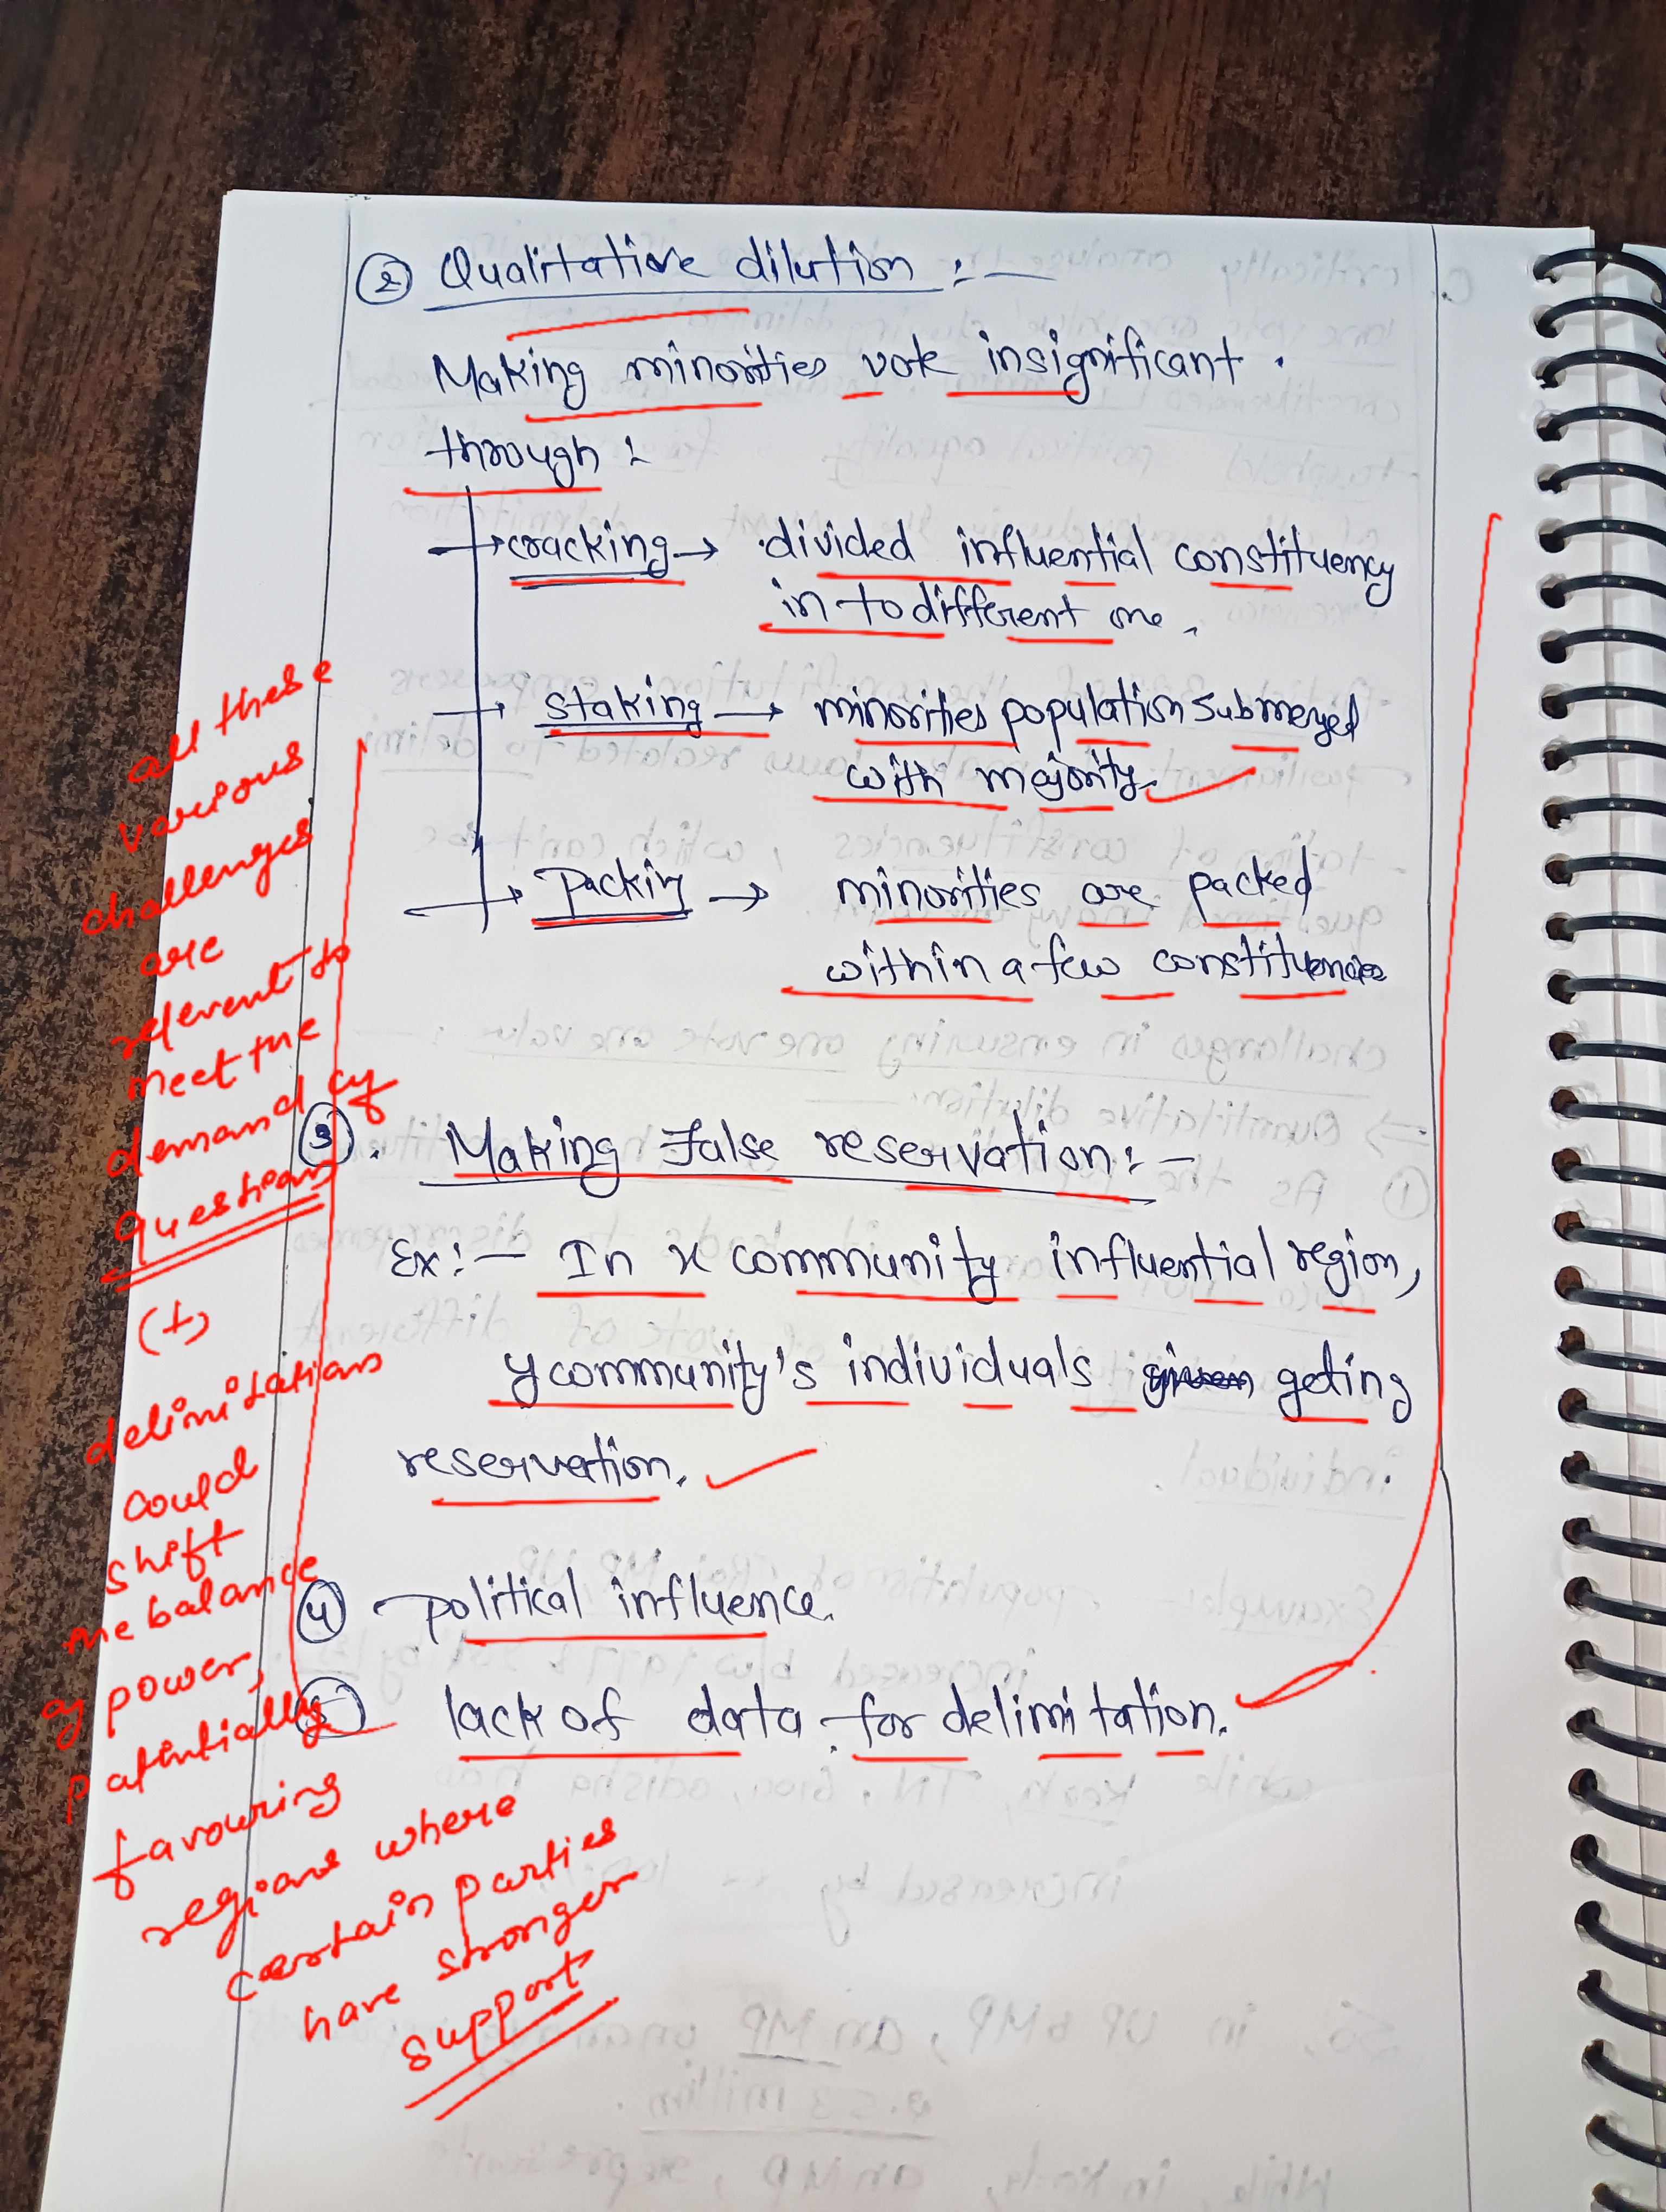 ② Qualitative dilution :—
Making minorities vote insignificant.
through :
→ cracking → divided influential constituency
in to different one.
→ staking → minorities population submerged
with majority.
→ Packing → minorities are packed
within a few constituencies
③. Making False reservation:-
Ex:- In x community influential region,
y community's individuals given geting
reservation.
④ political influence.
⑤ lack of data for delimitation.
all these
various
challenges
are
relevent to
meet the
demand of
questions
(+)
delimitations
could
shift
the balance
of power,
patintially
favouring
regions where
certain parties
have stronger
support